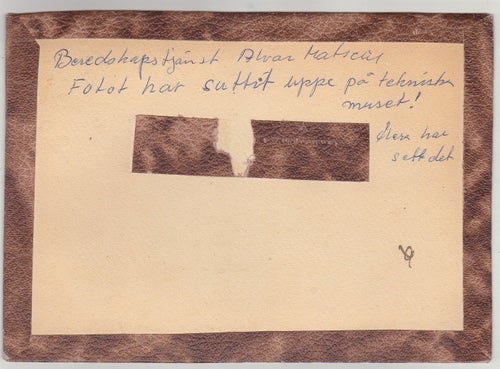 Beredskapstjänst Alvar
Fotot har suttit uppe på tekniska
muset!
Flera har
sett det